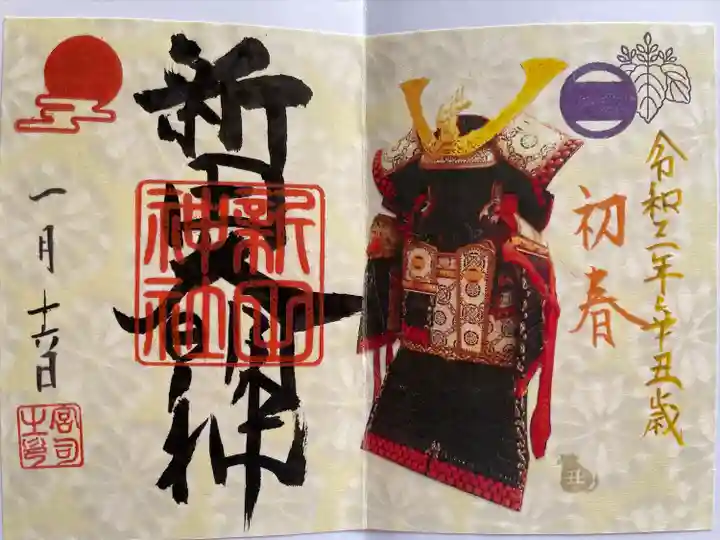 令和三年辛丑歳
初春
丑
新田大明神
新田神社
一月十六日
宮司之印